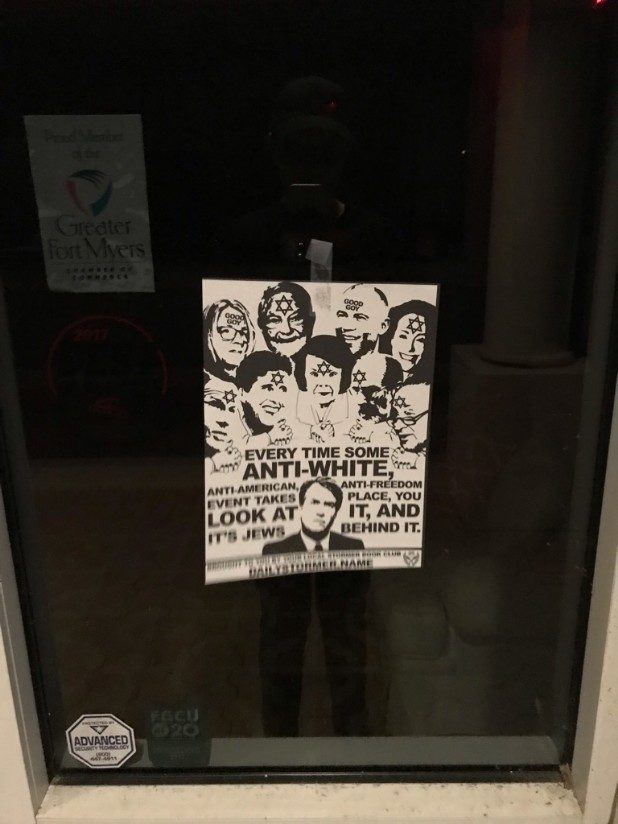 Proud Member
of the
Greater
Fort Myers
CHAMBER OF
COMMERCE
2017
GOOD
GOY
GOOD
GOY
EVERY TIME SOME
ANTI-WHITE,
ANTI-AMERICAN, ANTI-FREEDOM
EVENT TAKES PLACE, YOU
LOOK AT IT, AND
IT'S JEWS BEHIND IT.
BROUGHT TO YOU BY YOUR LOCAL STORMER BOOK CLUB
DAILYSTORMER.NAME
PROTECTED BY
ADVANCED
SECURITY TECHNOLOGY